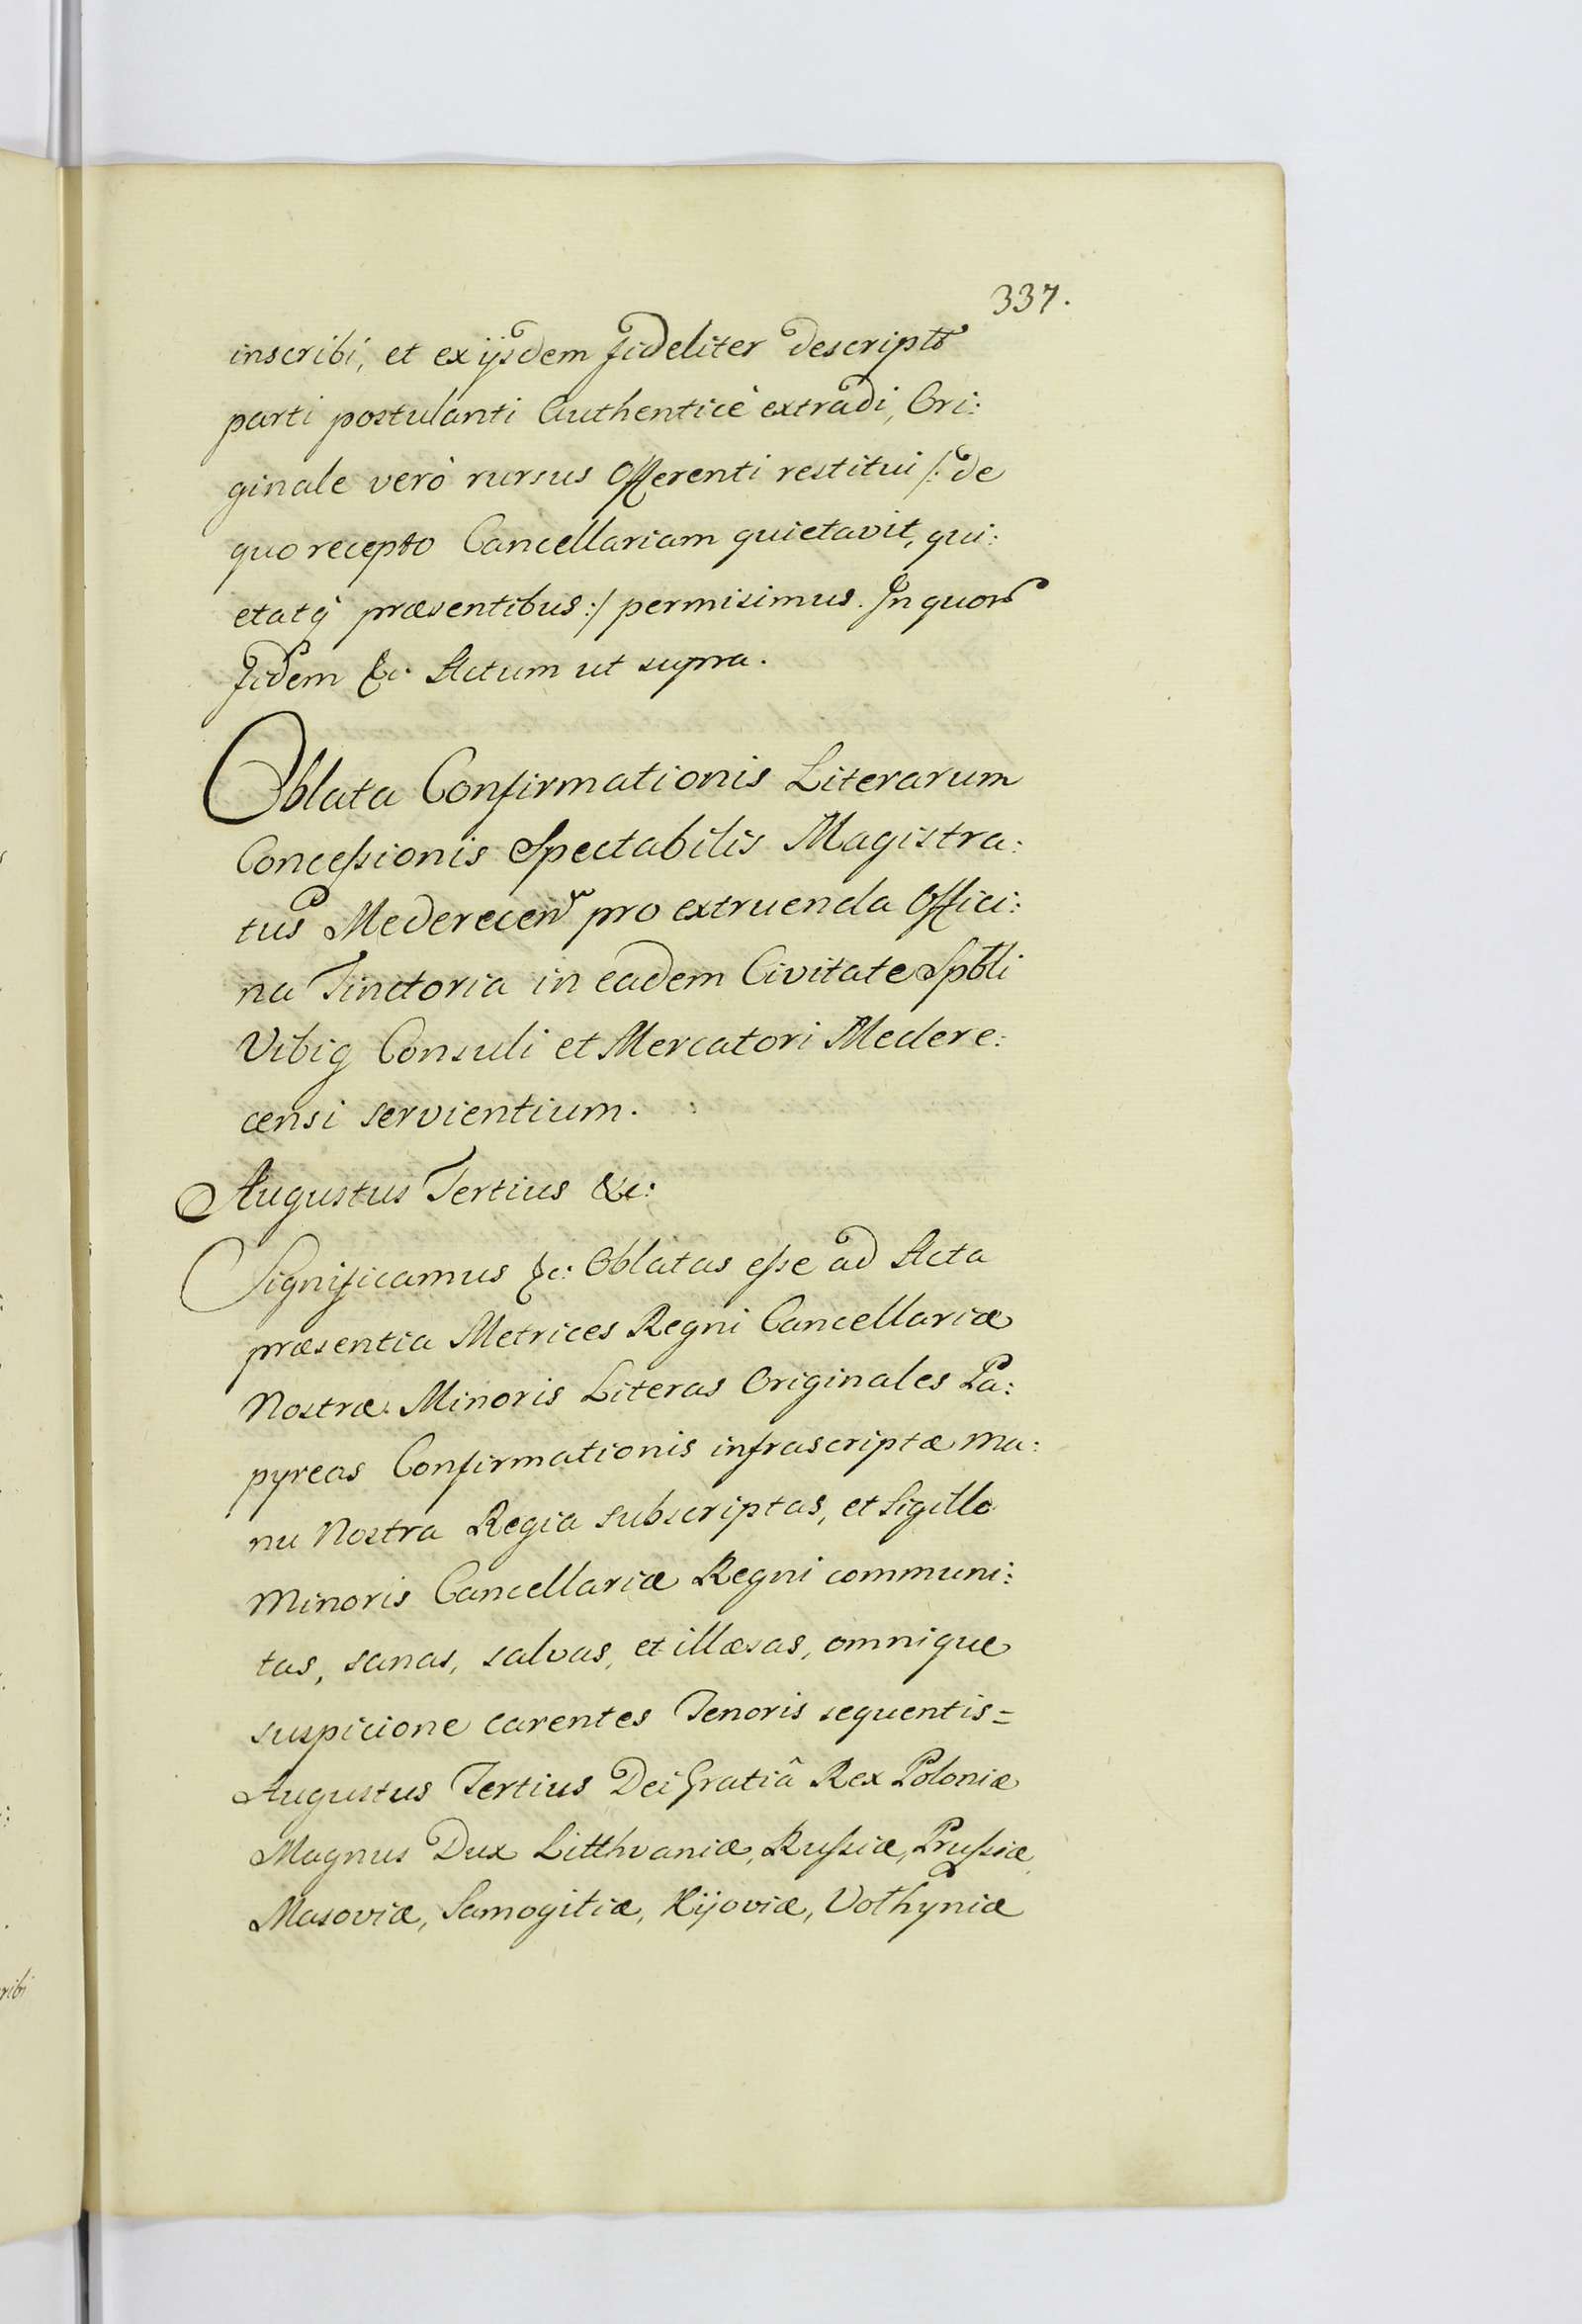 337.
inscribi, et ex ijsdem fideliter descriptū
parti postulanti Authenticè extradi, Ori:
ginale verò rursus Offerenti restitui /: de
quo recepto Cancellariam quietavit, qui:
etatq̃ præsentibus :/ permisimus. In quorū
fidem &c. Actum ut supra.
Oblata Confirmationis Literarum
Conceßionis Spectabilis Magistra:
tus Mederecen̄ pro extruenda Offici:
na Tinctoria in eadem Civitate Spbli
Vibig Consuli et Mercatori Medere:
censi servientium.
Augustus Tertius &c:
Significamus &c: Oblatas eße ad Acta
præsentia Metrices Regni Cancellariæ
Nostræ Minoris Literas Originales Pa:
pyreas Confirmationis infrascriptæ ma:
nu Nostra Regia subscriptas, et Sigillo
Minoris Cancellariæ Regni communi:
tas, sanas, salvas, et illæsas, omnique
suspicione carentes Tenoris sequentis =
Augustus Tertius Dei Gratiâ Rex Poloniæ
Magnus Dux Litthvaniæ, Rußiæ, Prußiæ
Masoviæ, Samogitiæ, Kijoviæ, Volhyniæ
ribi